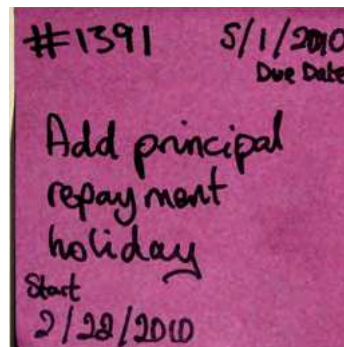 #1391 5/1/2010
Due Date
Add principal
repayment
holiday
Start
2/22/2010